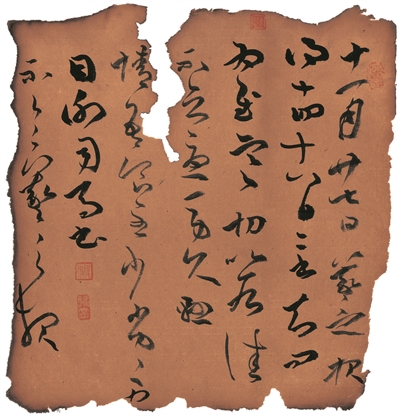 十一月廿七日羲之報
得十四十八日二書知問
為慰寒〻切比各佳
不念憂勞久懸
情吾食至少劣〻力
因謝司馬書
不一一羲之報